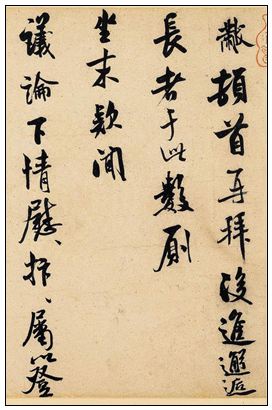 黻頓首再拜後進邂逅
長者于此數厠
坐末款聞
議論下情慰、抃、屬以登